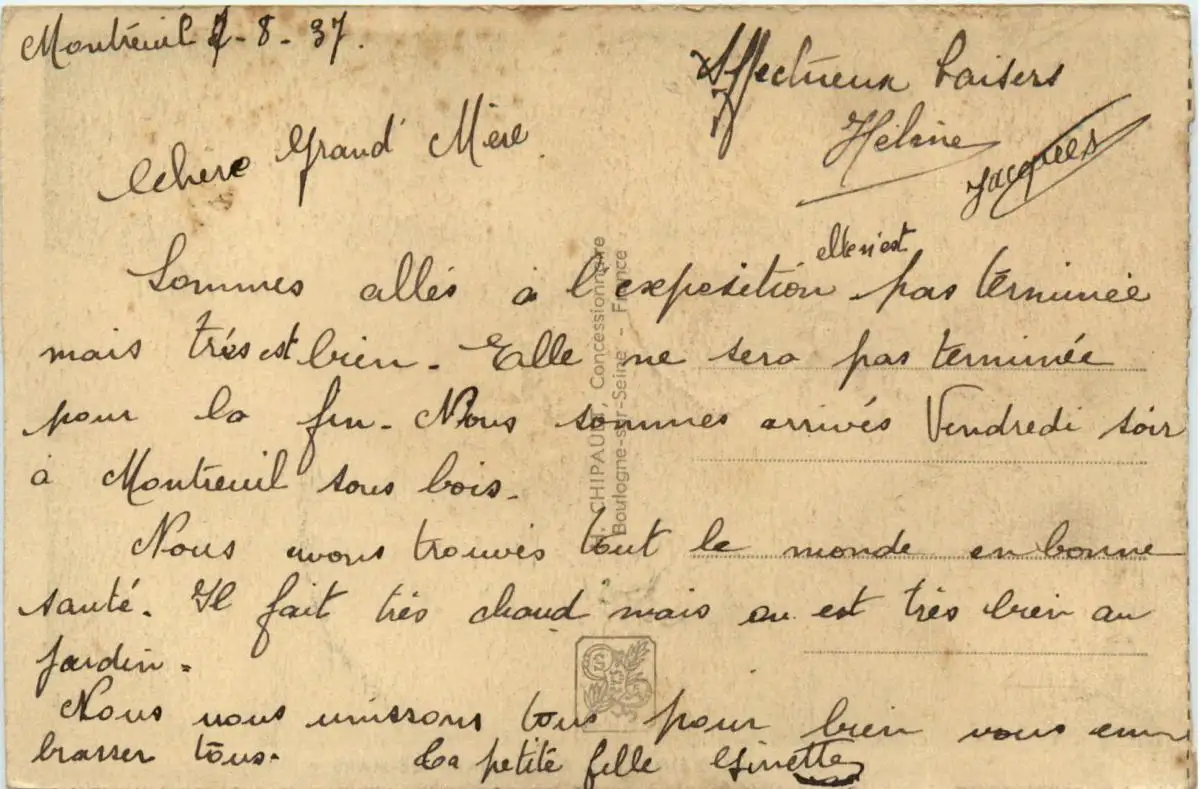 Montreuil 7-8-37.
Affectueux baisers
Hélène
Jacques
Chère Grand' Mère
elle n'est
Sommes allés à l'exposition pas terminée
mais très est bien. Elle ne sera pas terminée
pour la fin. Nous sommes arrivés Vendredi soir
à Montreuil sous bois.
Nous avons trouvés tout le monde en bonne
santé. Il fait très chaud mais on est très bien au
jardin.
Nous nous unissons tous pour bien vous em
brasser tous. La petite fille Ginette
CHIPAULT, Concessionnaire
Boulogne-sur-Seine - France